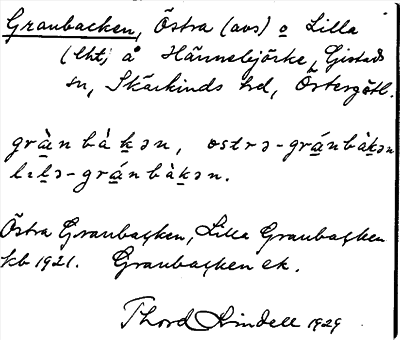 Granbacken, Östra (avs) o Lilla
(lht, å Hännebjörke, Gistads
sn, Skärkinds hd, Östergötl.
grànbàkən, ostrə-gránbàkən
lılə-gránbàkən.
Östra Granbacken, Lilla Granbacken
kb 1921. Granbacken ek.
Thord Lindell 1929